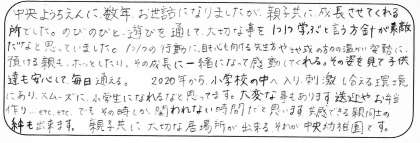 中央ようちえんに、数年お世話になりましたが、親子共に、成長させてくれる
所でした。のびのびと、遊びを通して、大切な事を 学ぶと言う方針が素敵
だなと思っていました。1人1人の行動に、目も心も向ける先生方や
頂ける親も、ホッとしたり、その成長に一緒になって感動してくれる。その姿を見て子供
達も安心して、毎日通える。 2020年から、小学校の中へ入り、刺激し合える環境
にあり、スムーズに、小学生になれるなと思ってます。大変な事もあります 送迎や お弁当
作り...etc. etc でも その時しか関われない時間だと思います 共感できる親同士の
絆も出来ます。 親子共に 大切な居場所が出来る それが中央幼稚園です。